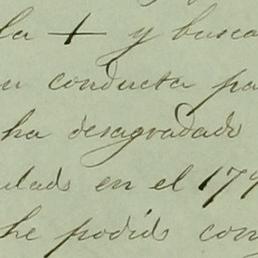 la + y busca
u conducta pa
ha desagradado
ulads en el 179
he podids con